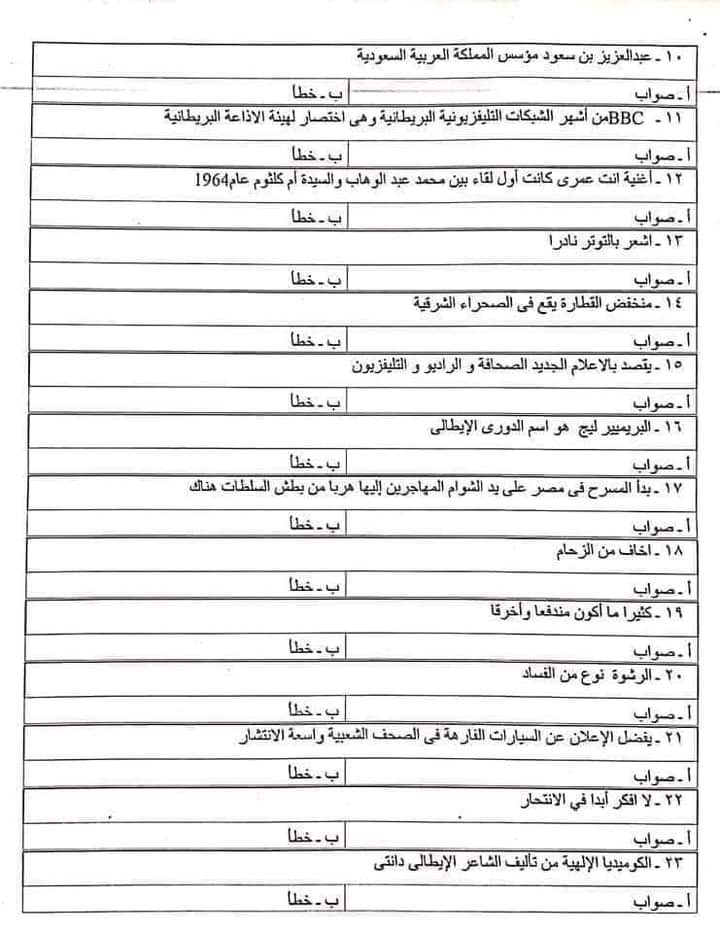 ١٠ ـ عبدالعزيز بن سعود مؤسس المملكة العربية السعودية
أ ـ صواب ب ـ خطأ
١١ ـ BBCمن أشهر الشبكات التليفزيونية البريطانية وهى اختصار لهيئة الاذاعة البريطانية
أ ـ صواب ب ـ خطأ
١٢ ـ أغنية انت عمرى كانت أول لقاء بين محمد عبد الوهاب والسيدة أم كلثوم عام1964
أ ـ صواب ب ـ خطأ
١٣ ـ اشعر بالتوتر نادرا
أ ـ صواب ب ـ خطأ
١٤ ـ منخفض القطارة يقع فى الصحراء الشرقية
أ ـ صواب ب ـ خطأ
١٥ ـ يقصد بالاعلام الجديد الصحافة و الراديو و التليفزيون
أ ـ صواب ب ـ خطأ
١٦ ـ البريميير ليج هو اسم الدورى الإيطالى
أ ـ صواب ب ـ خطأ
١٧ ـ بدأ المسرح فى مصر على يد الشوام المهاجرين إليها هربا من بطش السلطات هناك
أ ـ صواب ب ـ خطأ
١٨ ـ اخاف من الزحام
أ ـ صواب ب ـ خطأ
١٩ ـ كثيرا ما أكون مندفعا وأخرقا
أ ـ صواب ب ـ خطأ
٢٠ ـ الرشوة نوع من الفساد
أ ـ صواب ب ـ خطأ
٢١ ـ يفضل الإعلان عن السيارات الفارهة فى الصحف الشعبية واسعة الانتشار
أ ـ صواب ب ـ خطأ
٢٢ ـ لا افكر أبدا في الانتحار
أ ـ صواب ب ـ خطأ
٢٣ ـ الكوميديا الإلهية من تأليف الشاعر الإيطالى دانتى
أ ـ صواب ب ـ خطأ